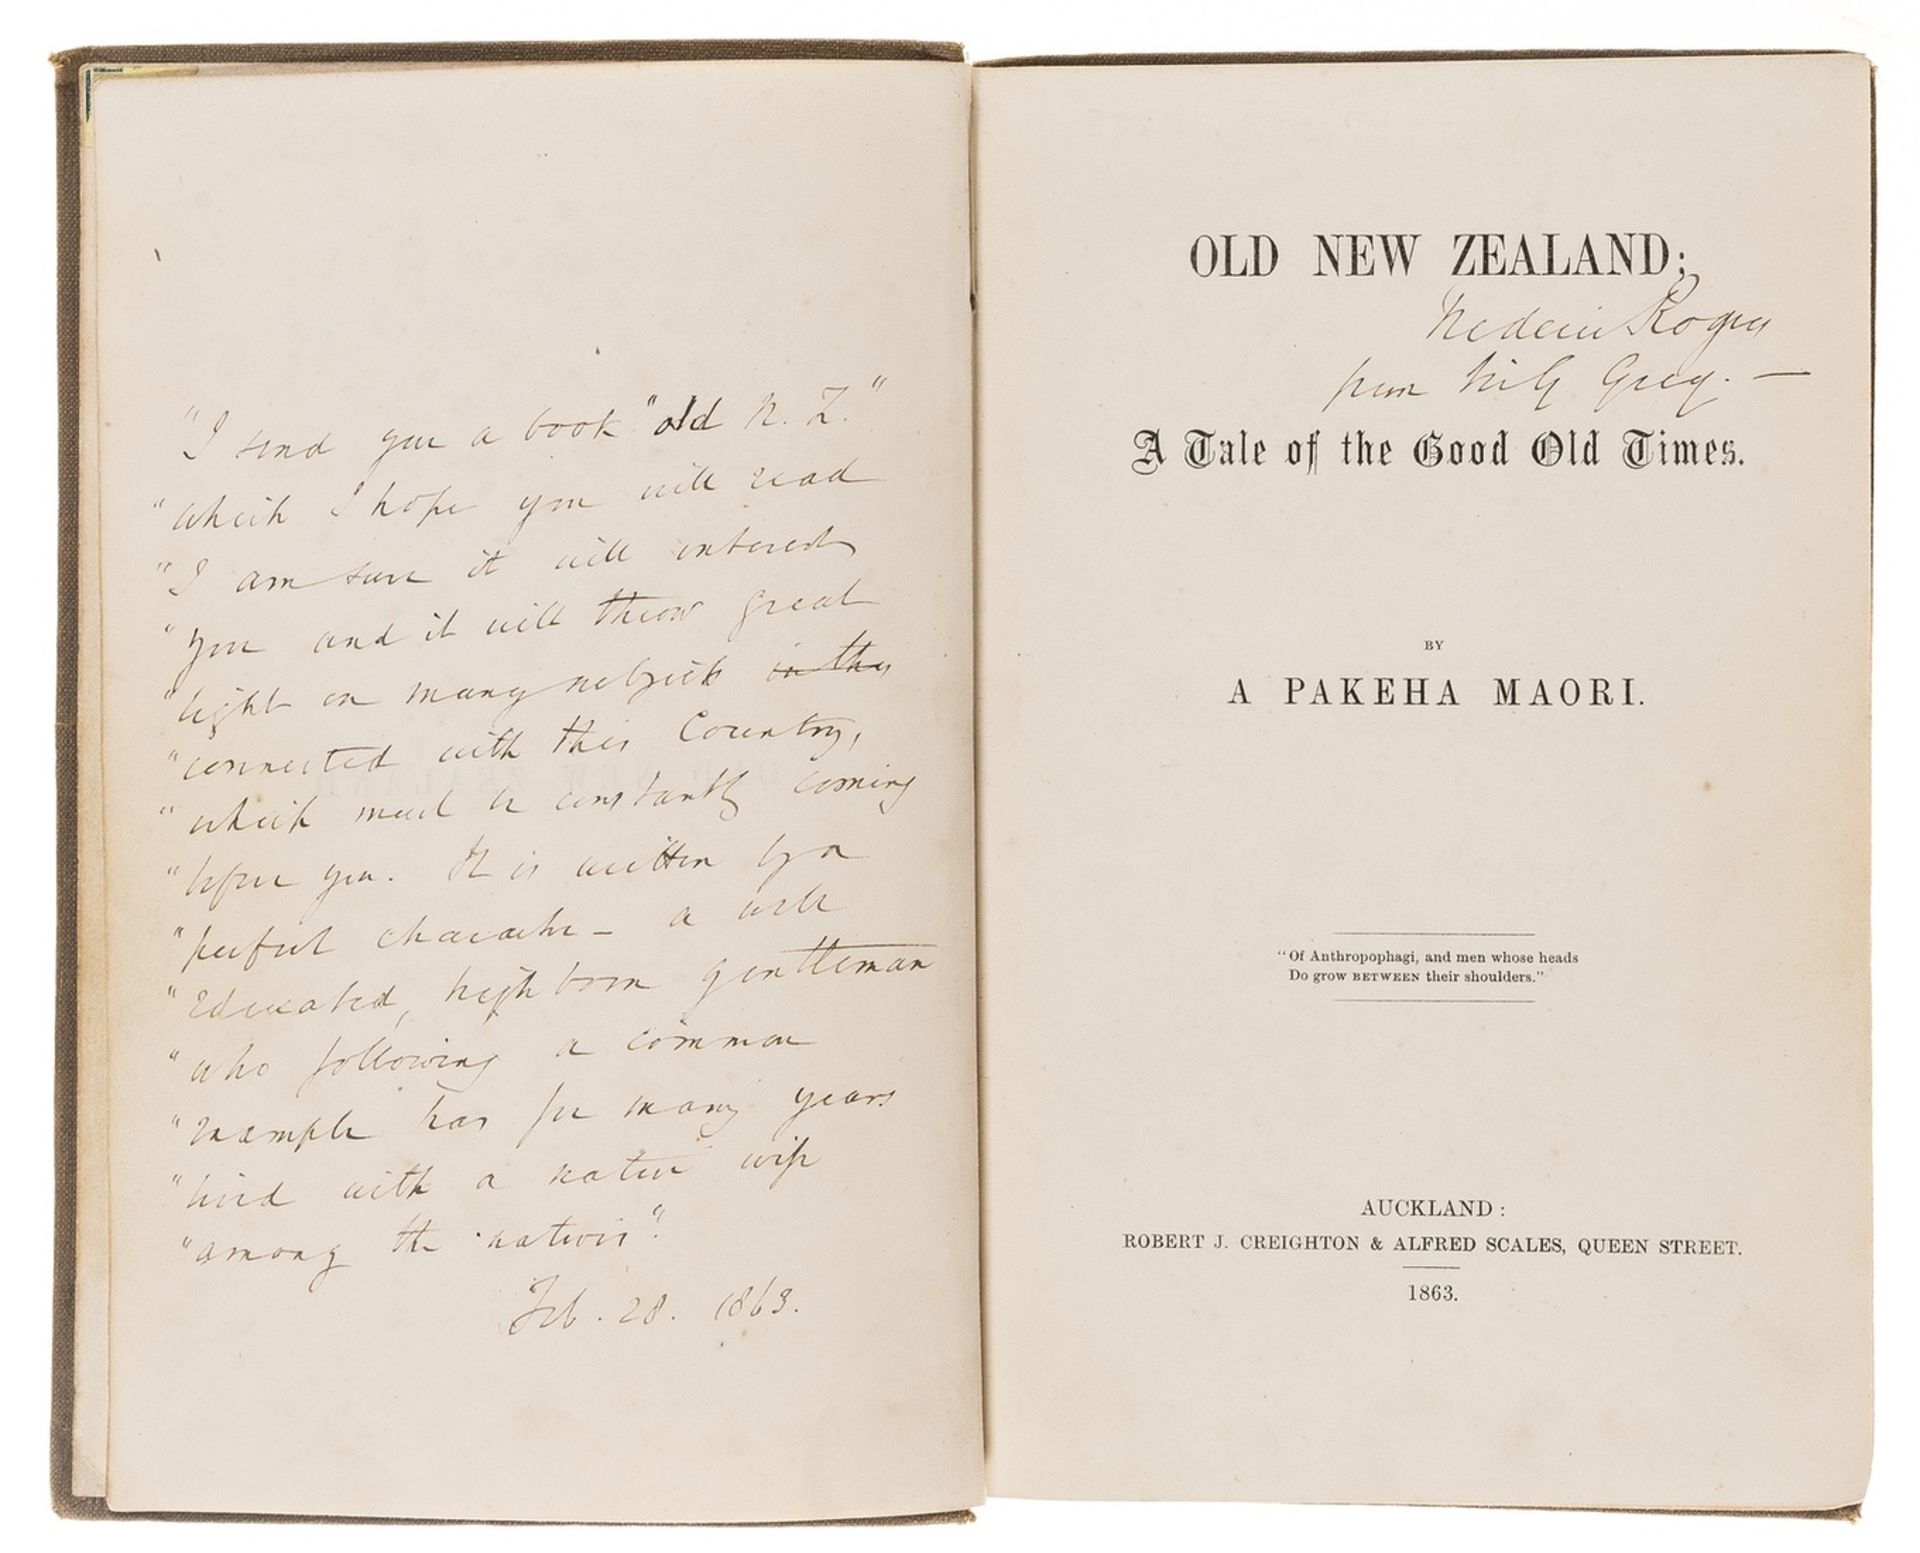 "I send you a book "old N. Z."
"which I hope you will read
"I am sure it will interest
"you and it will throw great
"light on many subjects in this
"connected with this Country,
"which must be constantly coming
"before you. It is written by a
"perfect character - a well
"educated, high born gentleman
"who following a common
"example has for many years
"lived with a native wife
"among the natives".
Feb. 28. 1863.
OLD NEW ZEALAND;
Rogers
from Grey. —
A Tale of the Good Old Times.
BY
A PAKEHA MAORI.
"Of Anthropophagi, and men whose heads
Do grow BETWEEN their shoulders."
AUCKLAND:
ROBERT J. CREIGHTON & ALFRED SCALES, QUEEN STREET.
1863.